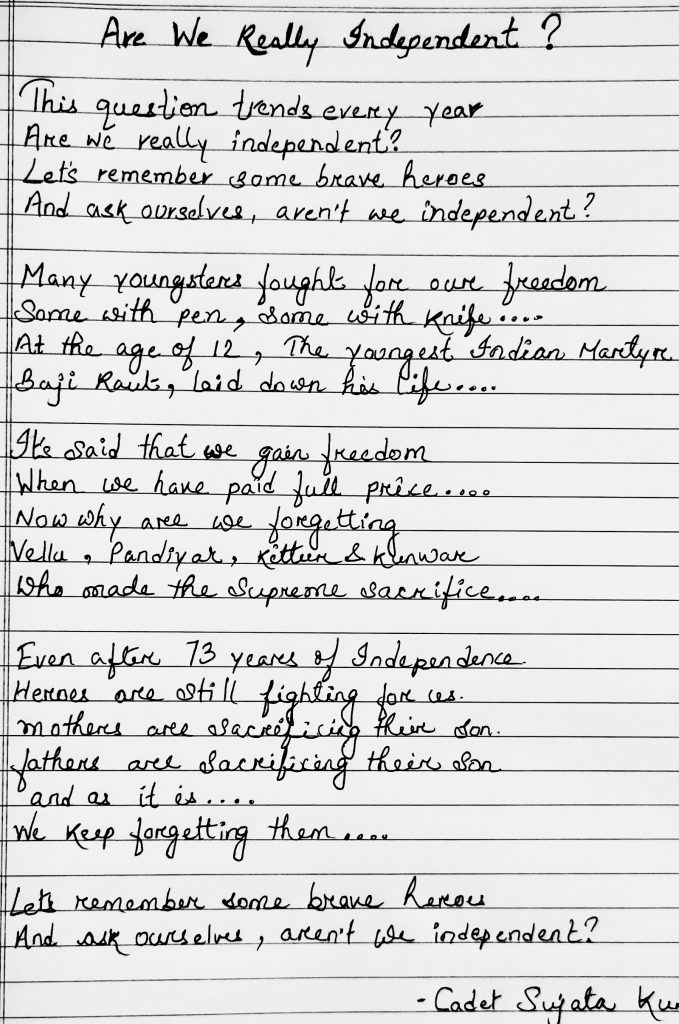 Are We Really Independent ?
This question trends every year
Are we really independent?
Let's remember some brave heroes
And ask ourselves, aren't we independent?
Many youngsters fought for our freedom
Some with pen, some with knife....
At the age of 12, The youngest Indian Martyr
Baji Raut, laid down his life....
It's said that we gain freedom
When we have paid full price....
Now why are we forgetting
Vellu, Pandiyar, Kittur & Kunwar
Who made the supreme sacrifice....
Even after 73 years of Independence
Heroes are still fighting for us.
mothers are sacrificing their son.
fathers are sacrificing their son
and as it is....
We keep forgetting them....
Lets remember some brave heroes
And ask ourselves, aren't we independent?
- Cadet Sujata